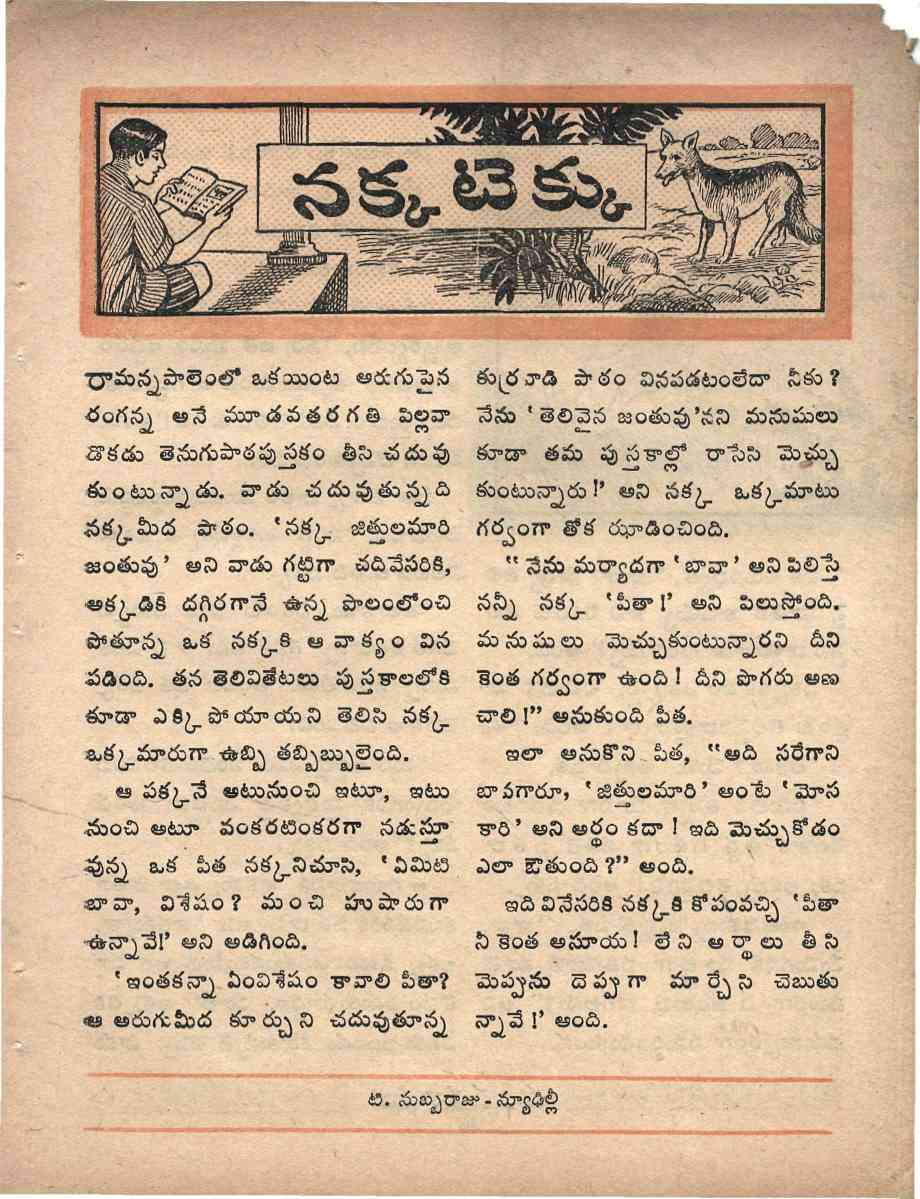 నక్క టెక్కు
రామన్నపాలెంలో ఒకయింట అరుగుపైన
రంగన్న అనే మూడవతరగతి పిల్లవా
డొకడు తెనుగుపాఠపుస్తకం తీసి చదువు
కుంటున్నాడు. వాడు చదువుతున్నది
నక్కమీద పాఠం. ‘నక్క జిత్తులమారి
జంతువు’ అని వాడు గట్టిగా చదివేసరికి,
అక్కడికి దగ్గిరగానే ఉన్న పొలంలోంచి
పోతూన్న ఒక నక్కకి ఆ వాక్యం విన
పడింది. తన తెలివితేటలు పుస్తకాలలోకి
కూడా ఎక్కిపోయాయని తెలిసి నక్క
ఒక్కమారుగా ఉబ్బి తబ్బిబ్బులైంది.
ఆ పక్కనే అటునుంచి ఇటూ, ఇటు
నుంచి అటూ వంకరటింకరగా నడుస్తూ
వున్న ఒక పీత నక్కనిచూసి, ‘ఏమిటి
బావా, విశేషం? మంచి హుషారుగా
ఉన్నావే!’ అని అడిగింది.
‘ఇంతకన్నా ఏంవిశేషం కావాలి పీతా?
ఆ అరుగుమీద కూర్చుని చదువుతూన్న
కుర్రవాడి పాఠం వినపడటంలేదా నీకు?
నేను ‘తెలివైన జంతువు’నని మనుషులు
కూడా తమ పుస్తకాల్లో రాసేసి మెచ్చు
కుంటున్నారు!’ అని నక్క ఒక్కమాటు
గర్వంగా తోక ఝాడించింది.
“నేను మర్యాదగా ‘బావా’ అని పిలిస్తే
నన్నీ నక్క ‘పీతా!’ అని పిలుస్తోంది.
మనుషులు మెచ్చుకుంటున్నారని దీని
కెంత గర్వంగా ఉంది! దీని పొగరు అణ
చాలి!” అనుకుంది పీత.
ఇలా అనుకొని పీత, “అది సరేగాని
బావగారూ, ‘జిత్తులమారి’ అంటే ‘మోస
కారి’ అని అర్థం కదా! ఇది మెచ్చుకోడం
ఎలా ఔతుంది?” అంది.
ఇది వినేసరికి నక్కకి కోపంవచ్చి ‘పీతా
నీ కెంత అసూయ! లేని అర్థాలు తీసి
మెప్పును దెప్పుగా మార్చేసి చెబుతు
న్నావే!’ అంది.
టి. సుబ్బరాజు - న్యూఢిల్లీ